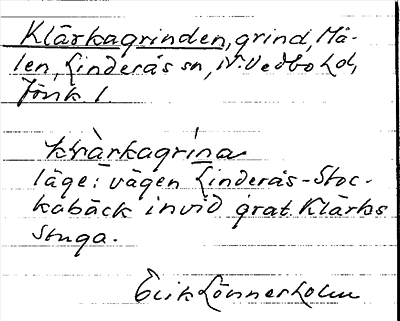 Klärkagrinden, grind, Må-
len, Linderås sn, N. Vedbo hd,
Jönk. l.
klärkagrina
läge: vägen Linderås-Stoc-
kabäck invid grat. Klärks
stuga.
Erik Lönnerholm